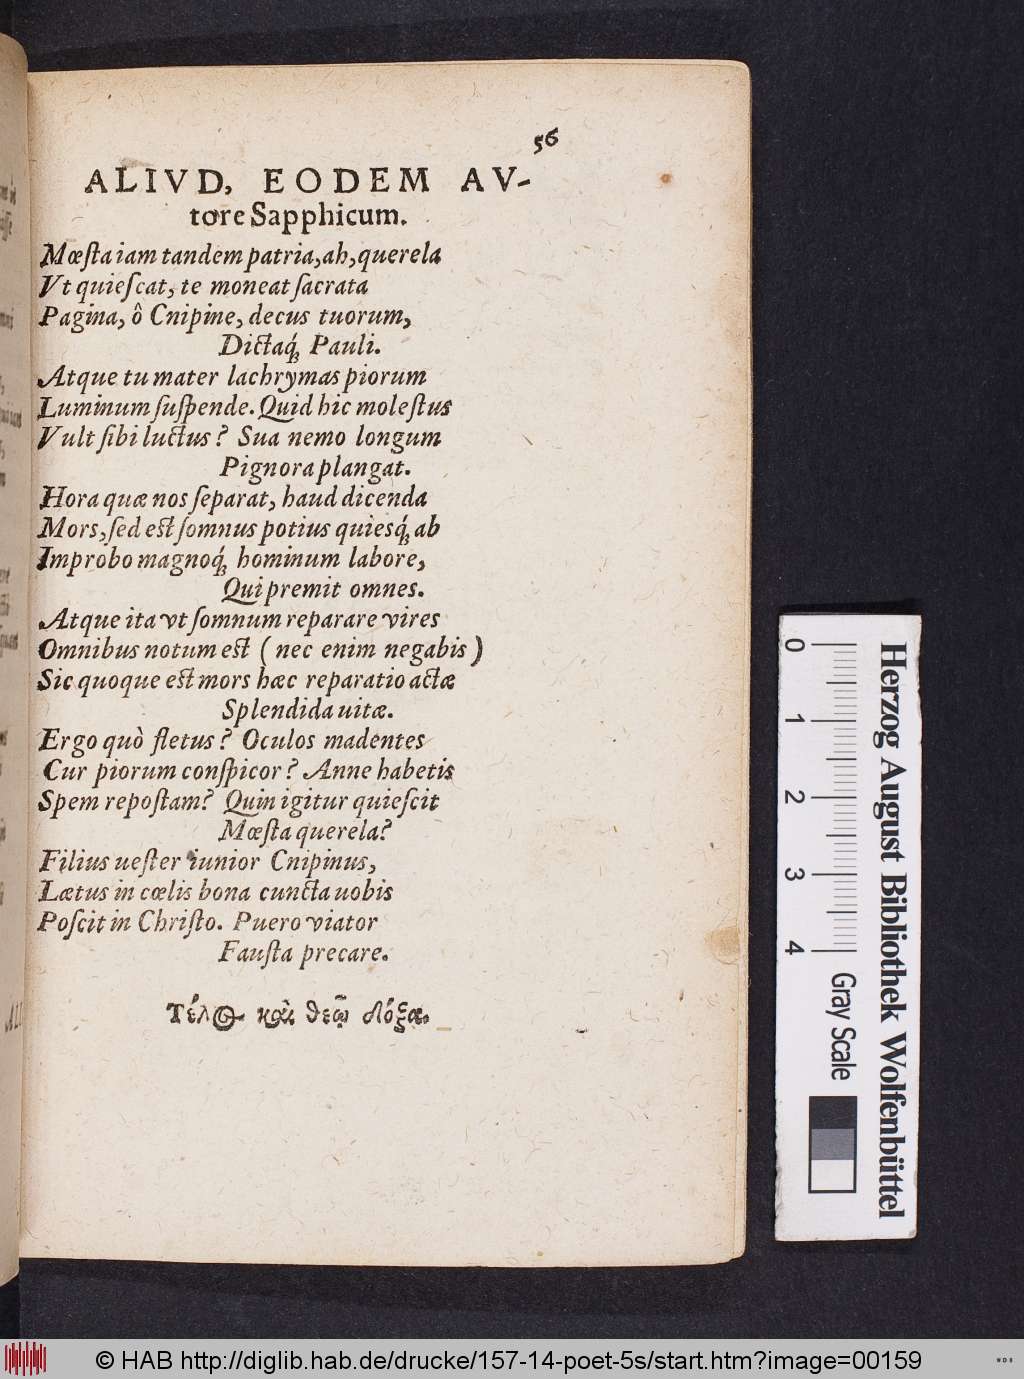 56
ALIVD, EODEM AV-
tore Sapphicum.
Mœſta iam tandem patria, ah, querela
Vt quieſcat, te moneat ſacrata
Pagina, ô Cnipine, decus tuorum,
Dictaq́ꝫ Pauli.
Atque tu mater lachrymas piorum
Luminum ſuſpende. Quid hic moleſtus
Vult ſibi luctus? Sua nemo longum
Pignora plangat.
Hora quæ nos ſeparat, haud dicenda
Mors, ſed eſt ſomnus potius quiesq́ꝫ ab
Improbo magnoq́ꝫ hominum labore,
Qui premit omnes.
Atque ita vt ſomnum reparare vires
Omnibus notum eſt (nec enim negabis)
Sic quoque eſt mors hæc reparatio actæ
Splendida uitæ.
Ergo quò fletus? Oculos madentes
Cur piorum conſpicor? Anne habetis
Spem repoſtam? Quin igitur quieſcit
Mœſta querela?
Filius ueſter iunior Cnipinus,
Lætus in cœlis bona cuncta uobis
Poſcit in Chriſto. Puero viator
Fauſta precare.
Τέλος καὶ θεῷ δόξα.
0 1 2 3 4
Gray Scale
Herzog August Bibliothek Wolfenbüttel
© HAB http://diglib.hab.de/drucke/157-14-poet-5s/start.htm?image=00159